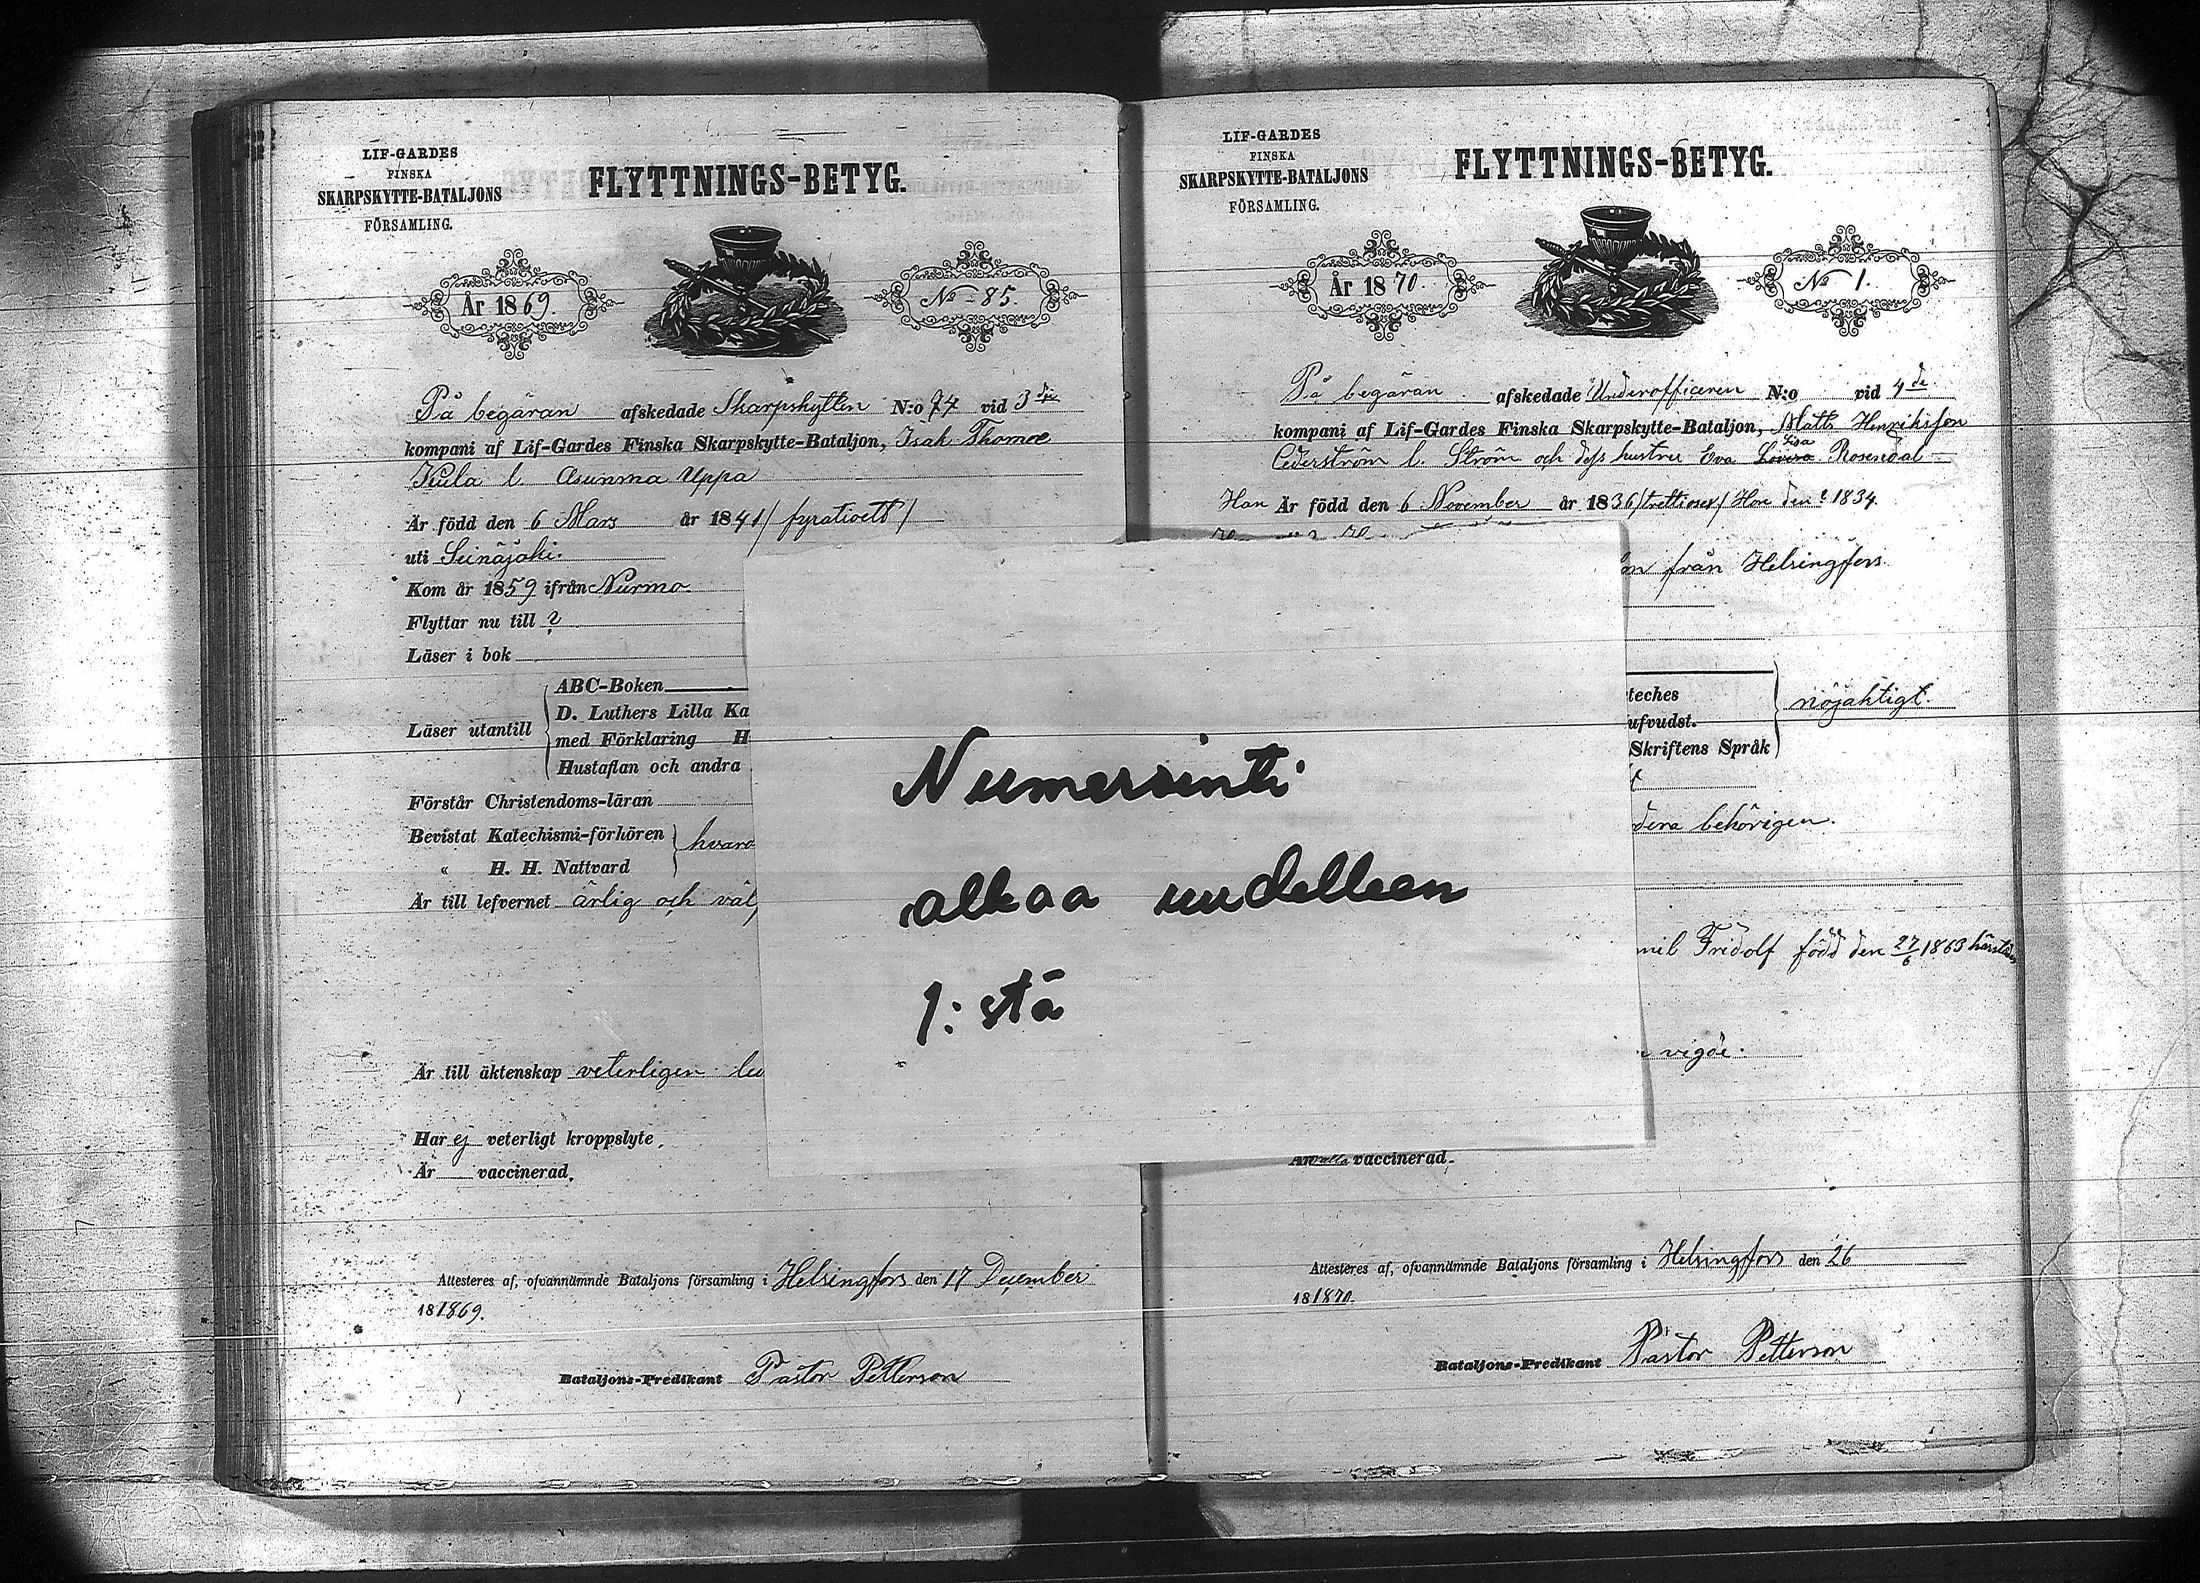 LIF-GARDES
FINSKA
SKARPSKYTTE-BATALJONS
FÖRSAMLING.
FLYTTNINGS-BETYG.
År 1869.
No 85.
På begäran afskedade Skarpskytten N:o 74 vid 3die
kompani af Lif-Gardes Finska Skarpskytte-Bataljon, Isak Thomæ
Kula l. Asunma Uppa
Är född den 6 Mars år 1841 / fyratioett /
uti Seinäjoki.
Kom år 1859 ifrån Nurmo.
Flyttar nu till ?
Läser i bok
Läser utantill
ABC-Boken
D. Luthers Lilla Ka
med Förklaring H
Hustaflan och andra
Förstår Christendoms-läran
Bevistat Katechismi-förhören
„ H. H. Nattvard
hvard
Är till lefvernet ärlig och väl
Är till äktenskap veterligen led
Har ej veterligt kroppslyte.
Är vaccinerad.
Attesteres af, ofvannämnde Bataljons församling i Helsingfors den 17 December
181869.
Bataljons-Predikant Pastor Petterson
Numerointi
alkaa uudelleen
1:stä
LIF-GARDES
FINSKA
SKARPSKYTTE-BATALJONS
FÖRSAMLING.
FLYTTNINGS-BETYG.
År 1870.
No 1.
På begäran afskedade Underofficeren N:o vid 4de
kompani af Lif-Gardes Finska Skarpskytte-Bataljon, Matts Henriksson
Cederström l. Ström och dess hustru Eva Lovisa Lisa Rosendal
Han Är född den 6 November år 1836 /trettiosex/ Hon den ? 1834.
från Helsingfors.
teches
ufvudst.
Skriftens Språk
nöjaktigt.
dera behörigen.
mil Fridolf född den 27/6 1863 härstädes
vigde.
Är alla vaccinerad.
Attesteres af, ofvannämnde Bataljons församling i Helsingfors den 26
181870.
Bataljons-Predikant Pastor Petterson